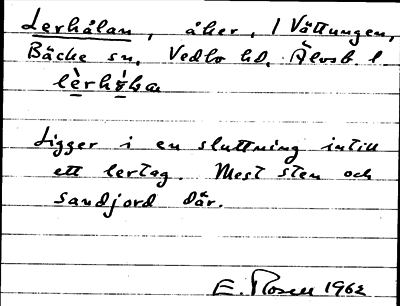 Lerhålan, åker, 1 Vättungen,
Bäcke sn. Vedbo hd. Älvsb. l.
Ligger i en sluttning intill
ett lertag. Mest sten och
sandjord där.
E. Rosell 1962